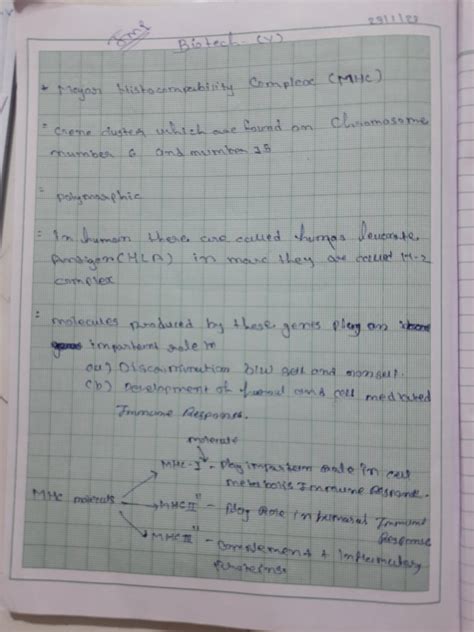 29/1/22
Biotech-(V)
* Mejar Histocompatibility Complex (MHC)
= Gene cluster which are found on Chromosome
number 6 and number 15
= polymorphic
= In human there are called human leucocyte
Antigen (HLA) in mice they are called H-2
complex
= molecules produced by these genes play an
important role in
(a) Discrimination b/w self and nonself.
(b) Development of and cell mediated
Immune Response.
molecule
MHC-I - Play important role in cell
Immune Response.
MHC molecule MHC II" - Play Role in Immune
Response
MHC III" - Complement + Inflammatory
proteins.